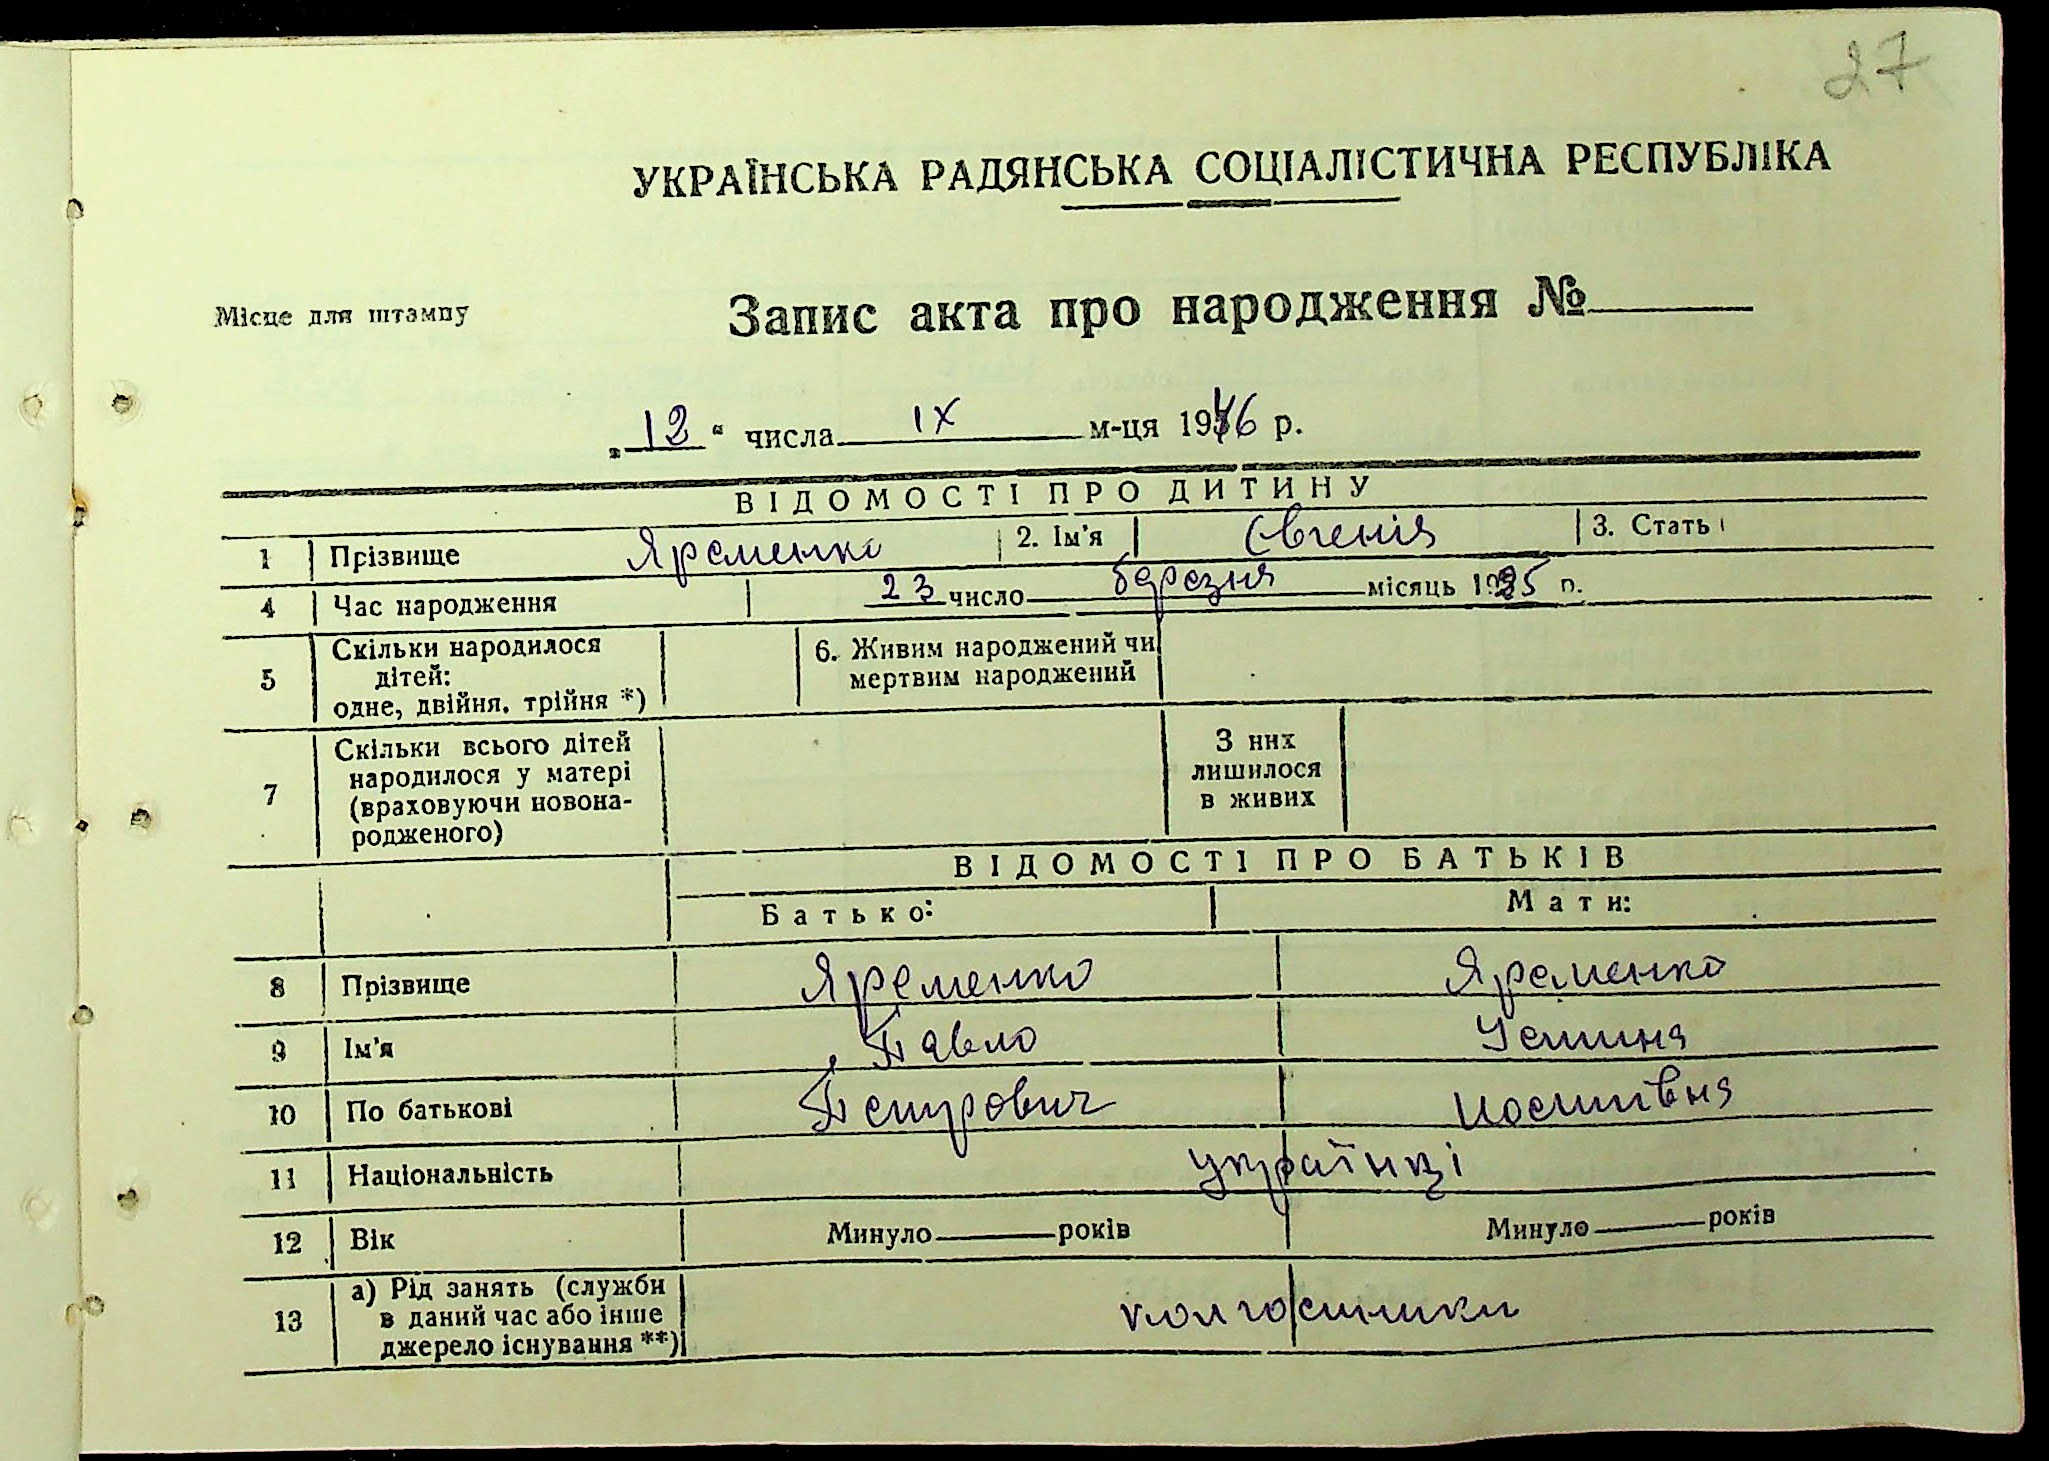 27
УКРАЇНСЬКА РАДЯНСЬКА СОЦІАЛІСТИЧНА РЕСПУБЛІКА
Місце для штампу
Запис акта про народження №
„12“ числа ІХ м-ця 1946 р.
ВІДОМОСТІ ПРО ДИТИНУ
1 Прізвище Яременко 2. Ім'я Євгенія 3. Стать
4 Час народження 23 число березня місяць 1925 р.
5 Скільки народилося дітей: одне, двійня, трійня *) 6. Живим народжений чи мертвим народжений
7 Скільки всього дітей народилося у матері (враховуючи новона-родженого) З них лишилося в живих
ВІДОМОСТІ ПРО БАТЬКІВ
Батько: Мати:
8 Прізвище Яременко Яременко
9 Ім'я Павло Устина
10 По батькові Петрович Йосипівна
11 Національність українці
12 Вік Минуло років Минуло років
13 а) Рід занять (служби в даний час або інше джерело існування **) колгоспники